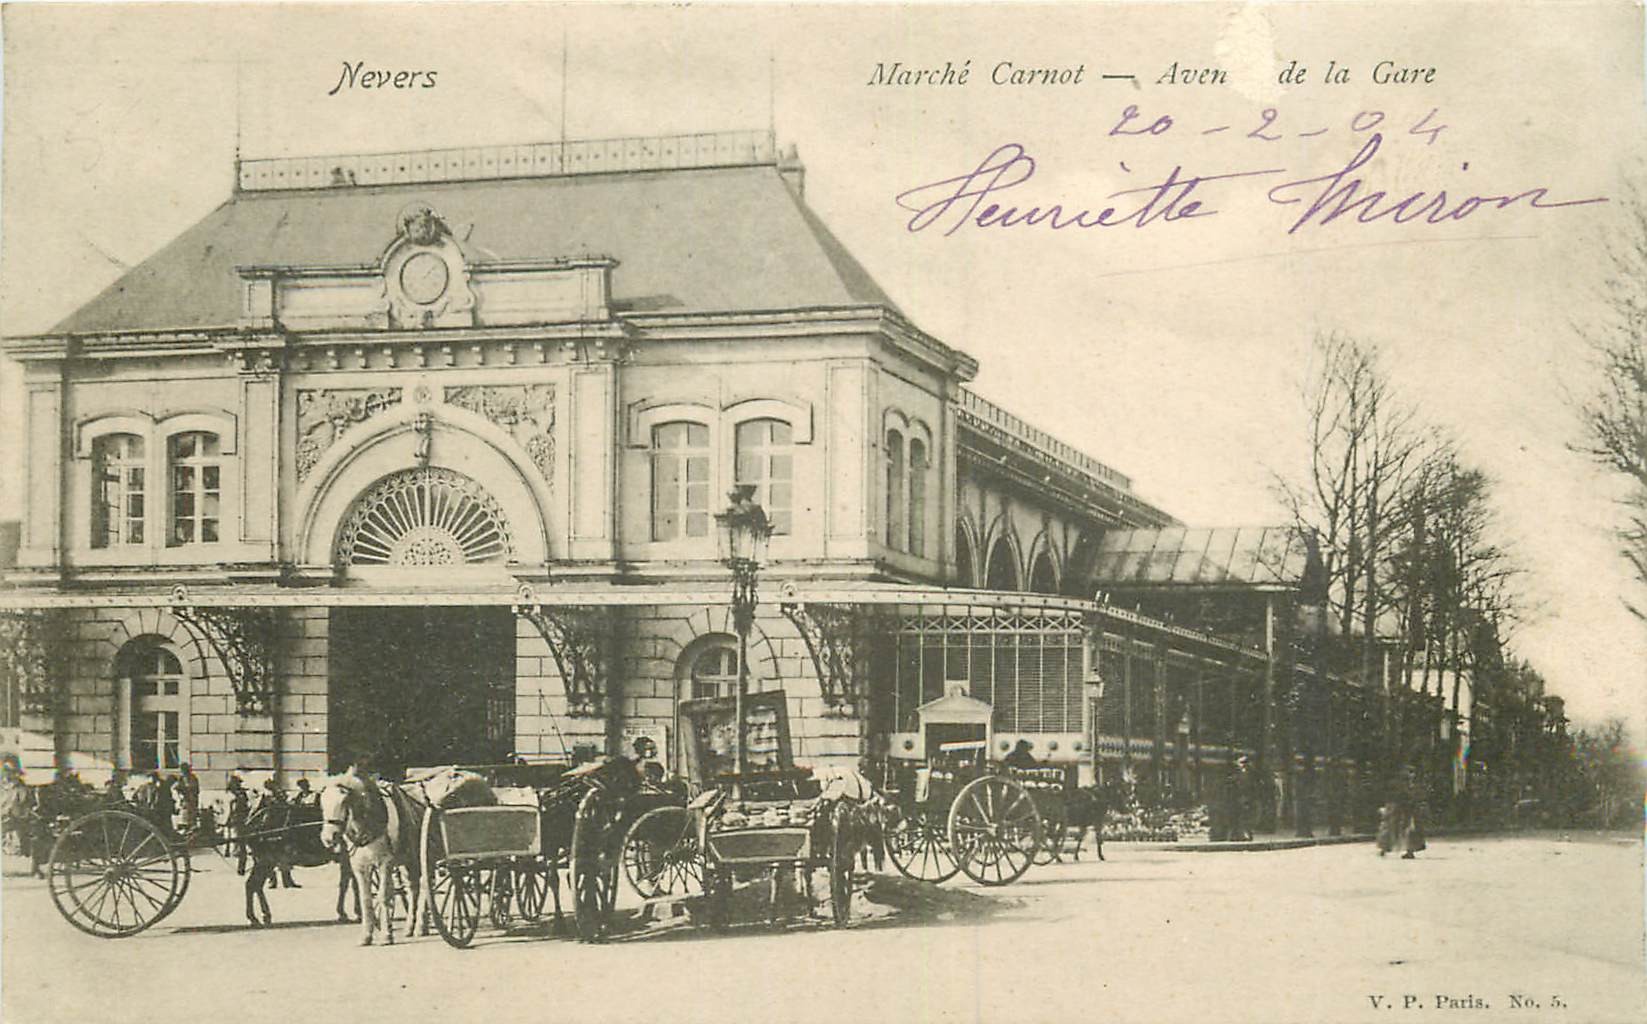 Nevers
Marché Carnot — Aven de la Gare
20-2-04
Henriette Miron
V. P. Paris. No. 5.